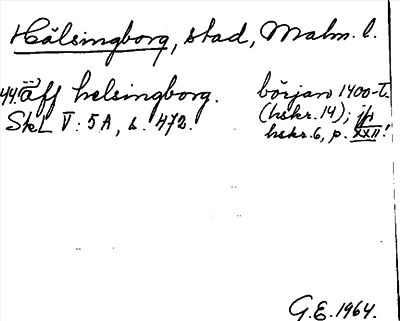 Hälsingborg, stad, Malm. l.
44. äff helsingborg. början 1400-t.
SkL V: 5A, s. 472. (hskr. 14); jp
hskr. 6, p. XXII!
G.E. 1964.